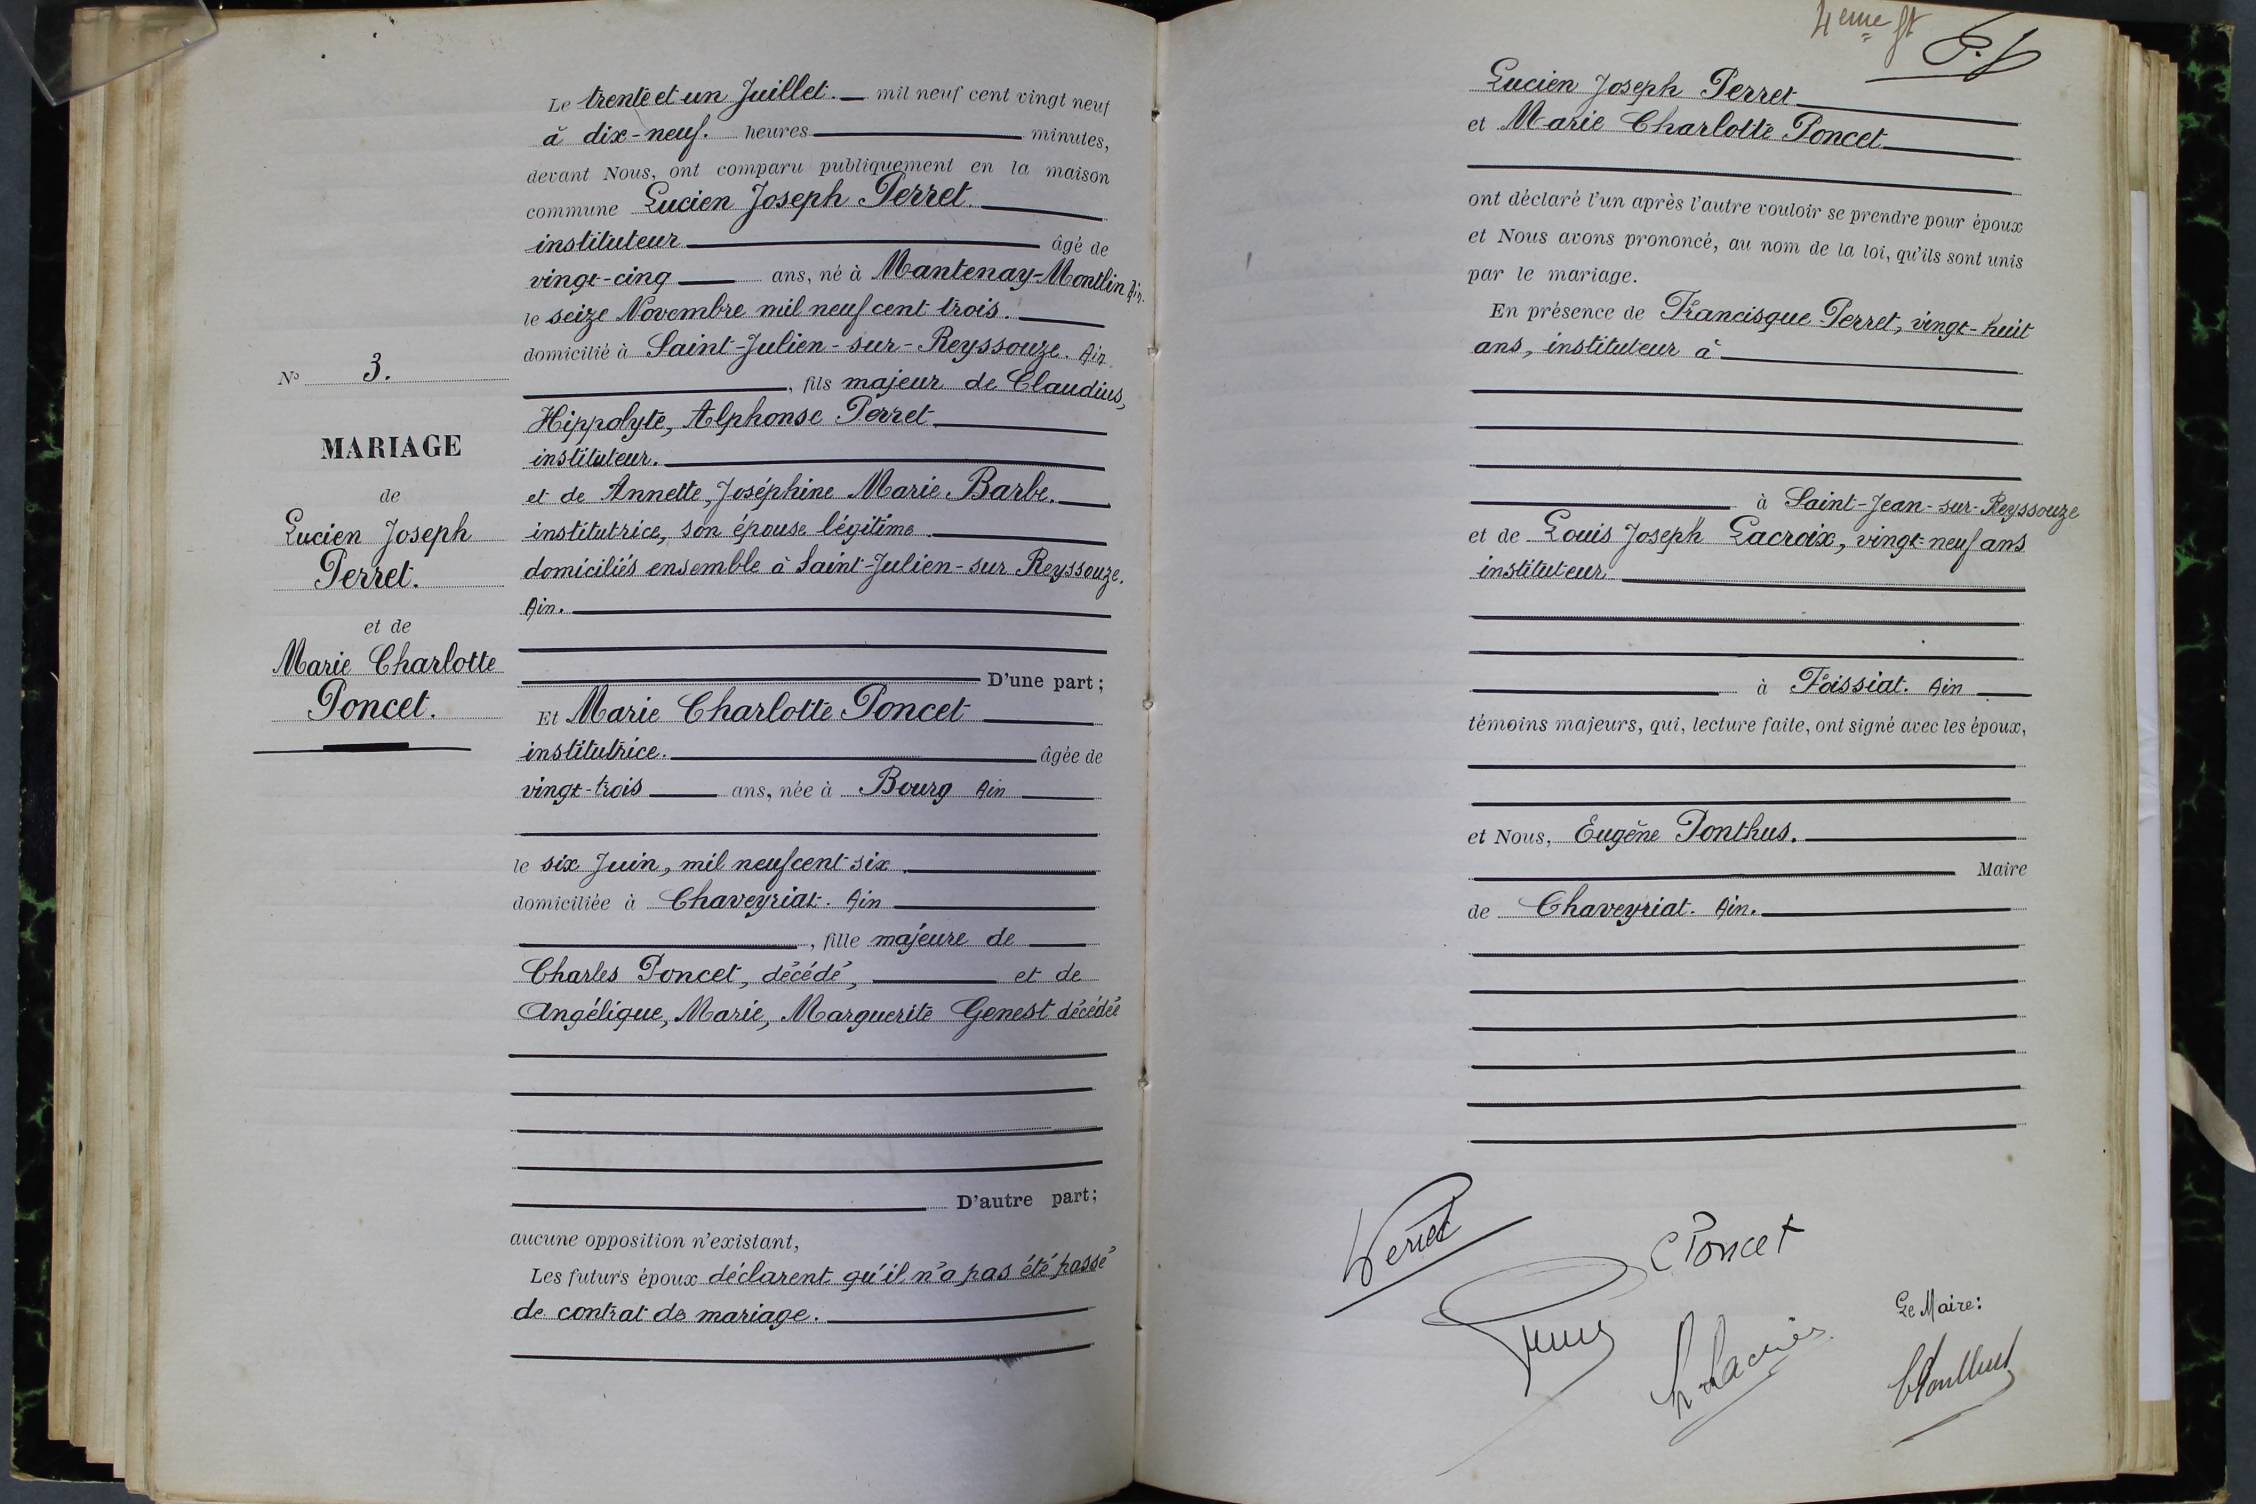 N° 3.
MARIAGE
de
Lucien Joseph
Perret.
et de
Marie Charlotte
Poncet.
Le trente et un Juillet. mil neuf cent vingt neuf
à dix-neuf. heures minutes,
devant Nous, ont comparu publiquement en la maison
commune Lucien Joseph Perret.
instituteur âgé de
vingt-cinq ans, né à Mantenay-Montlin Ain.
le seize Novembre mil neuf cent trois.
domicilié à Saint-Julien-sur-Reyssouze. Ain.
, fils majeur de Claudius,
Hippolyte, Alphonse Perret
instituteur.
et de Annette, Joséphine Marie Barbe.
institutrice, son épouse légitime.
domiciliés ensemble à Saint-Julien-sur Reyssouze.
Ain.
D'une part;
Et Marie Charlotte Poncet
institutrice. âgée de
vingt-trois ans, née à Bourg Ain
le six Juin, mil neuf cent six.
domiciliée à Chaveyriat. Ain
, fille majeure de
Charles Poncet, décédé, et de
Angélique, Marie, Marguerite Genest décédée
D'autre part;
aucune opposition n'existant,
Les futurs époux déclarent qu'il n'a pas été passé
de contrat de mariage.
4eme
Lucien Joseph Perret
et Marie Charlotte Poncet
ont déclaré l'un après l'autre vouloir se prendre pour époux
et Nous avons prononcé, au nom de la loi, qu'ils sont unis
par le mariage.
En présence de Francisque Perret, vingt-huit
ans, instituteur à
à Saint-Jean-sur-Reyssouze
et de Louis Joseph Lacroix, vingt-neuf ans
instituteur
à Foissiat. Ain
témoins majeurs, qui, lecture faite, ont signé avec les époux,
et Nous, Eugène Ponthus.
Maire
de Chaveyriat. Ain.
Perret
C Poncet
Le Maire:
L. Lacroix